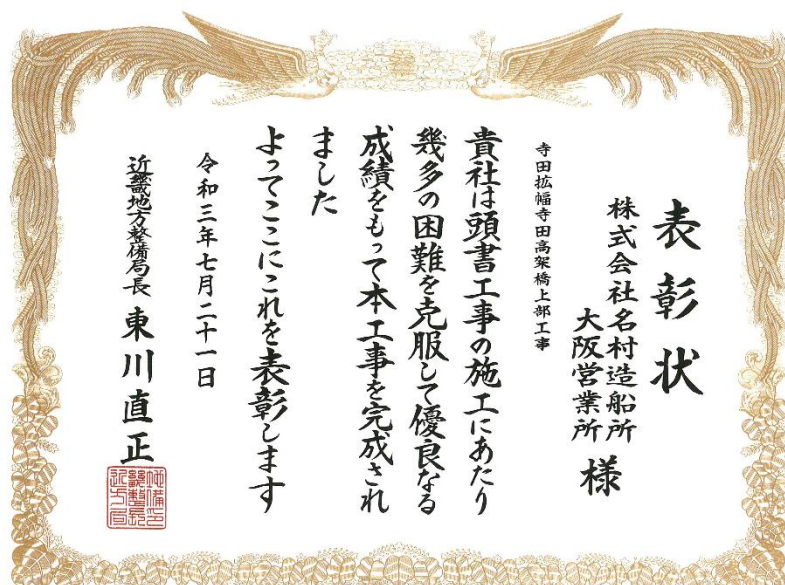 表彰状
株式会社名村造船所
大阪営業所 様
寺田拡幅寺田高架橋上部工事
貴社は頭書工事の施工にあたり
幾多の困難を克服して優良なる
成績をもって本工事を完成され
ました
よってここにこれを表彰します
令和三年七月二十一日
近畿地方整備局長 東川直正